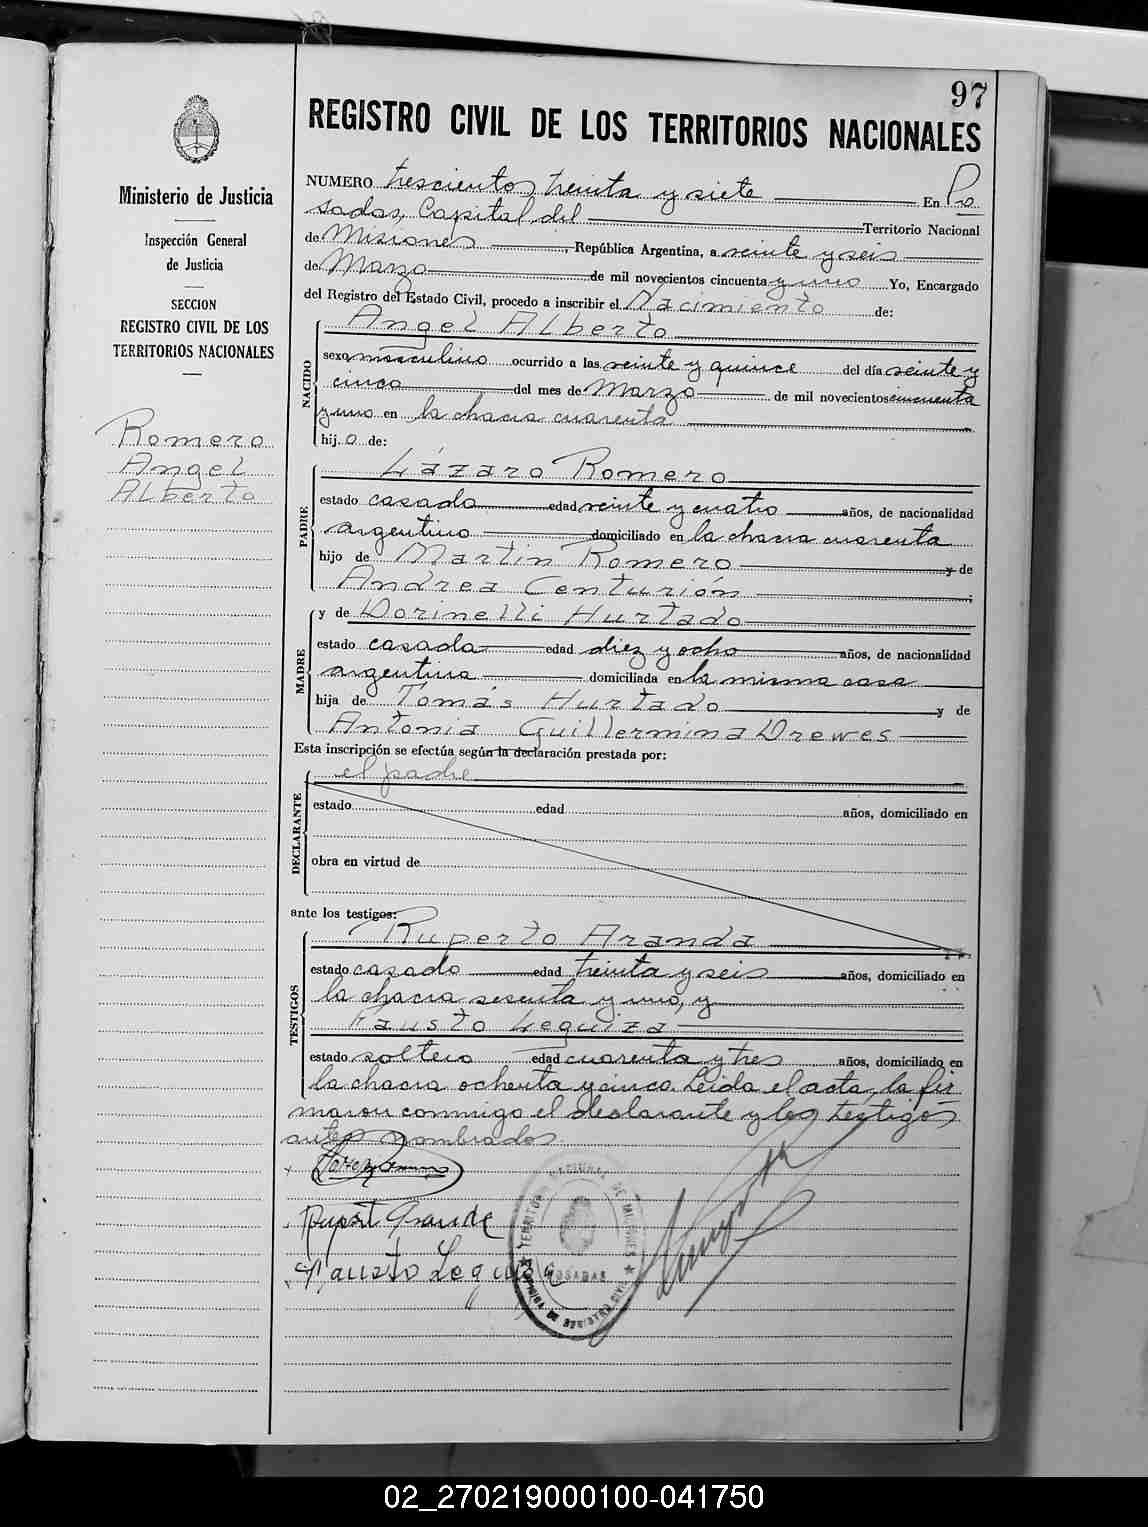 97
REGISTRO CIVIL DE LOS TERRITORIOS NACIONALES
Ministerio de Justicia
Inspección General
de Justicia
SECCION
REGISTRO CIVIL DE LOS
TERRITORIOS NACIONALES
Romero
Angel
Alberto
NUMERO trescientos treinta y siete En Po
sadas, Capital del Territorio Nacional
de Misiones, República Argentina, a veinte y seis
de Marzo de mil novecientos cincuenta y uno Yo, Encargado
del Registro del Estado Civil, procedo a inscribir el Nacimiento de:
Angel Alberto
NACIDO
sexo masculino ocurrido a las veinte y quince del día veinte y
cinco del mes de Marzo de mil novecientos cincuenta
y uno en la chacra cuarenta
hijo de:
Lázaro Romero
PADRE
estado casado edad veinte y cuatro años, de nacionalidad
argentino domiciliado en la chacra cuarenta
hijo de Martin Romero y de
Andrea Centurión ;
y de Dorinelli Hurtado
MADRE
estado casada edad diez y ocho años, de nacionalidad
argentina domiciliada en la misma casa
hija de Tomás Hurtado y de
Antonia Guillermina Drewes
Esta inscripción se efectúa según la declaración prestada por:
el padre
DECLARANTE
estado edad años, domiciliado en
obra en virtud de
ante los testigos:
Ruperto Aranda
TESTIGOS
estado casado edad treinta y seis años, domiciliado en
la chacra sesenta y uno, y
Fausto Leguiza
estado soltero edad cuarenta y tres años, domiciliado en
la chacra ochenta y cinco. Leida el acta, la fir
maron conmigo el declarante y los testigos
antes nombrados.
Fausto Leguiza
TERRITORIO NACIONAL DE MISIONES
POSADAS
OFICINA DE REGISTRO CIVIL
02_270219000100-041750